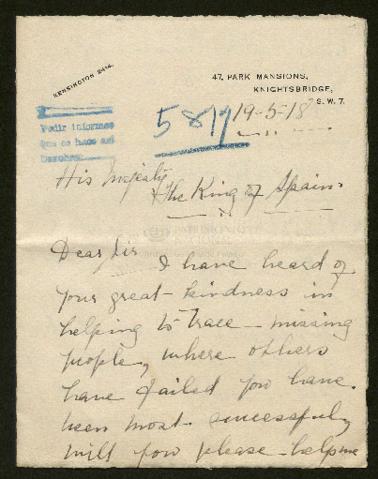 KENSINGTON 2414.
47, PARK MANSIONS,
KNIGHTSBRIDGE,
S.W. 7.
5819
19-5-18
Pedir informes
que se hace así
His Majesty
The King of Spain.
Dear Sir
I have heard of
your great kindness in
helping to trace missing
people, where others
have failed you have
been most successful,
will you please help me